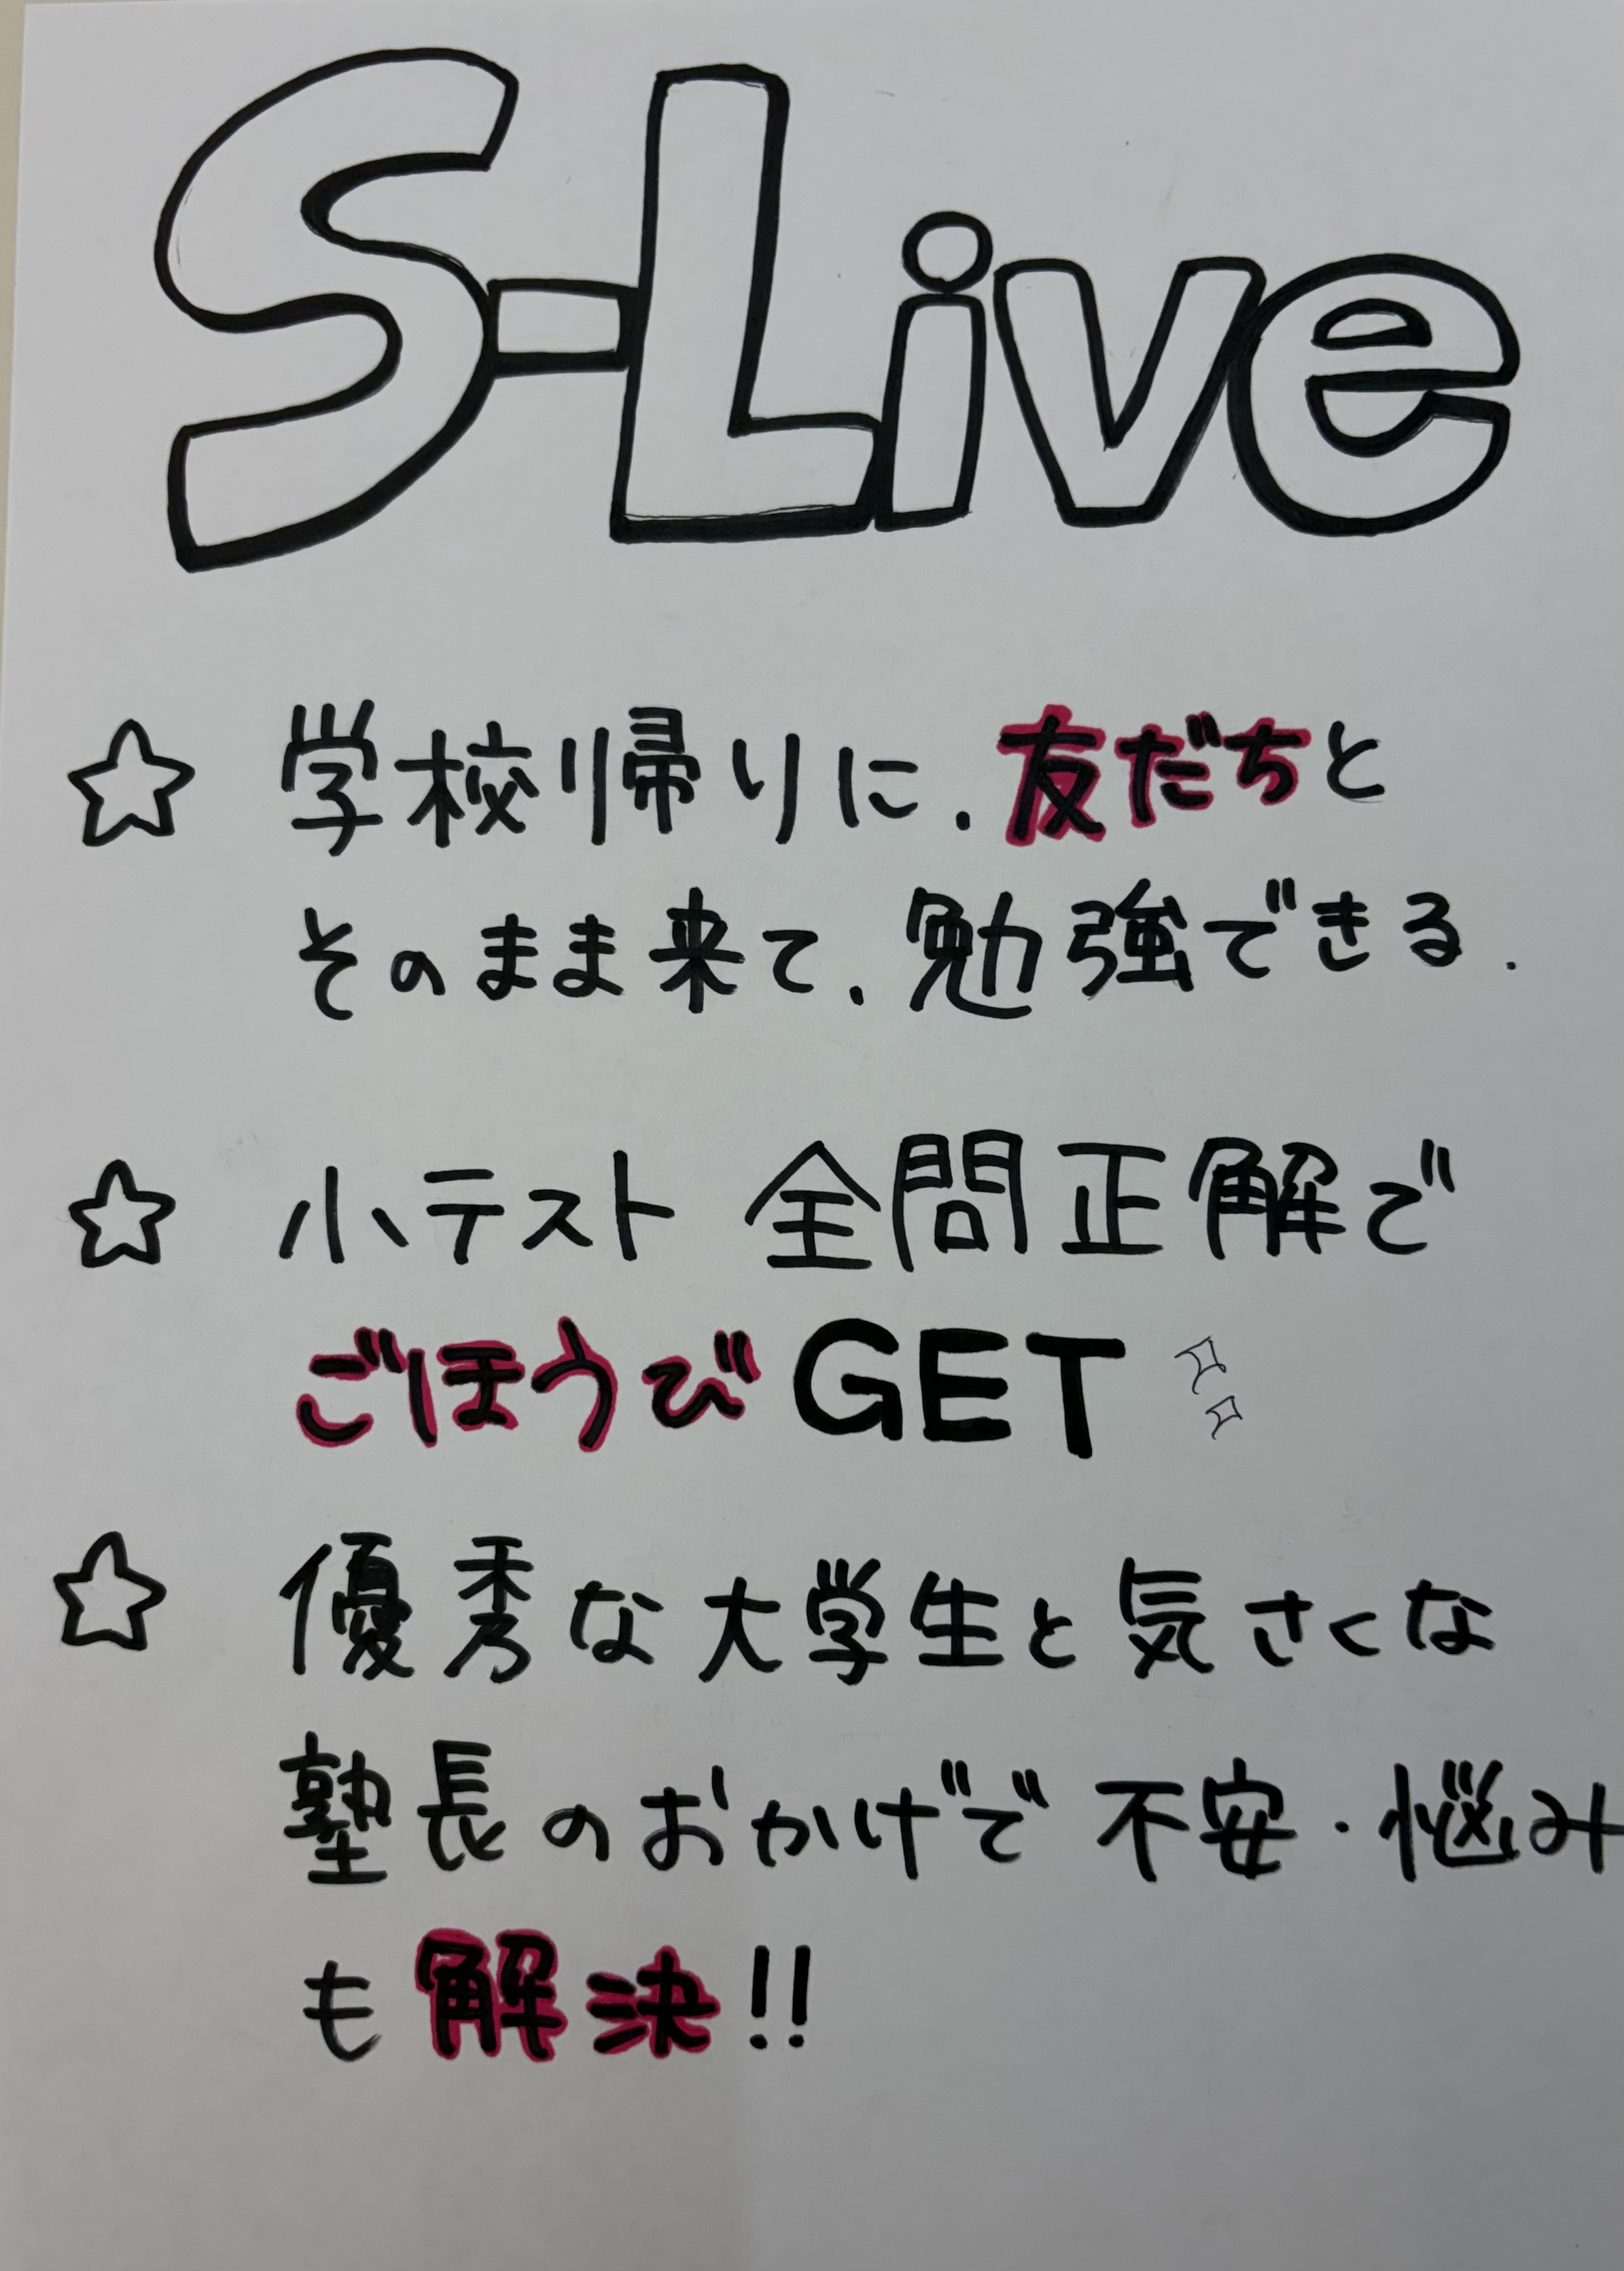 S-Live
☆ 学校帰りに.友だちと
そのまま来て.勉強できる.
☆ 小テスト 全問正解で
ごほうびGET
☆ 優秀な大学生と気さくな
塾長のおかげで不安・悩み
も解決!!